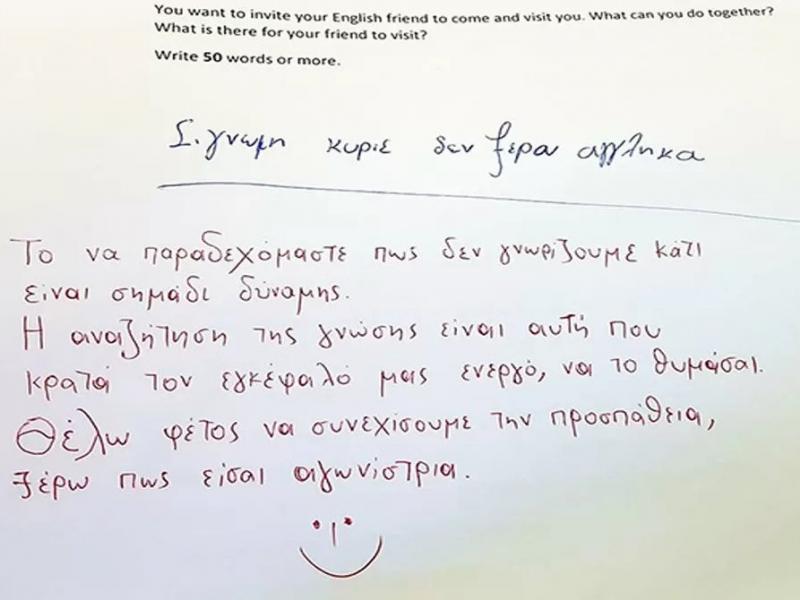 You want to invite your English friend to come and visit you. What can you do together?
What is there for your friend to visit?
Write 50 words or more.
Σ.γνωμη κυριε δεν ξερω αγγληκα
Το να παραδεχόμαστε πως δεν γνωρίζουμε κάτι
είναι σημάδι δύναμης.
Η αναζήτηση της γνώσης είναι αυτή που
κρατά τον εγκέφαλό μας ενεργό, να το θυμάσαι.
Θέλω φέτος να συνεχίσουμε την προσπάθεια,
ξέρω πως είσαι αγωνίστρια.